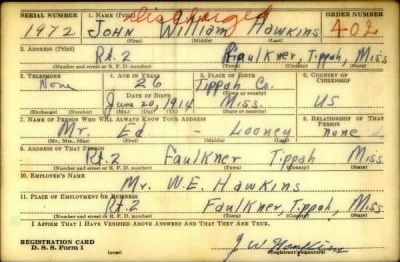 Discharged
SERIAL NUMBER 1. NAME (Print) ORDER NUMBER
1972 JOHN William Hawkins 402
(First) (Middle) (Last)
2. ADDRESS (Print)
Rt. 2 Faulkner, Tippah, Miss
(Number and street or R. F. D. number) (Town) (County) (State)
3. TELEPHONE 4. AGE IN YEARS 5. PLACE OF BIRTH 6. COUNTRY OF CITIZENSHIP
None 26 Tippah Co.
DATE OF BIRTH (Town or county)
June 20, 1914 Miss. US
(Exchange) (Number) (Mo.) (Day) (Yr.) (State or country)
7. NAME OF PERSON WHO WILL ALWAYS KNOW YOUR ADDRESS 8. RELATIONSHIP OF THAT PERSON
Mr. Ed - Looney none
(Mr., Mrs., Miss) (First) (Middle) (Last)
9. ADDRESS OF THAT PERSON
Rt. 2 Faulkner Tippah Miss
(Number and street or R. F. D. number) (Town) (County) (State)
10. EMPLOYER'S NAME
Mr. W.E. Hawkins
11. PLACE OF EMPLOYMENT OR BUSINESS
Rt. 2 Faulkner, Tippah, Miss
(Number and street or R. F. D. number) (Town) (County) (State)
I AFFIRM THAT I HAVE VERIFIED ABOVE ANSWERS AND THAT THEY ARE TRUE.
REGISTRATION CARD
D. S. S. Form 1 J W Hawkins
(Registrant's signature)